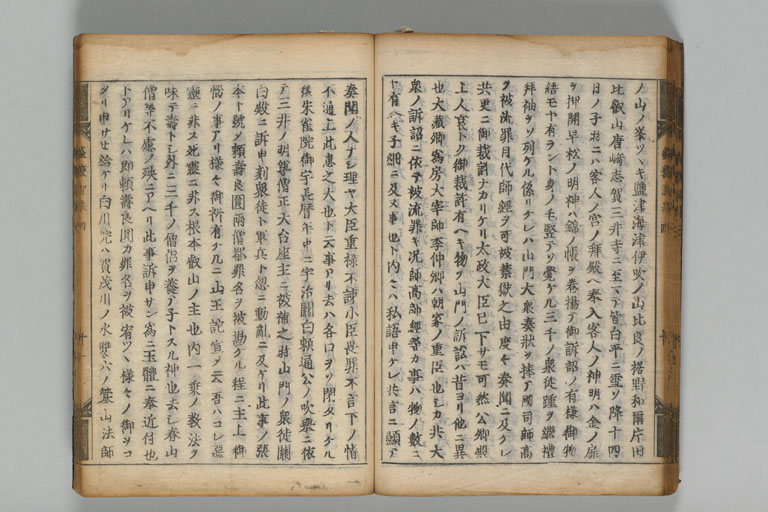 ノ山ノ峯ツヽキ鹽津海津伊吹ノ山比良ノ裾野和爾片田
比叡山唐﨑志賀三井寺ニ至マテ皆白平ニ雪ソ降十四
日ノ子ニハ客人ノ宮ノ拜殿ヘ奉入客人ノ神明ハ金ノ扉
ヲ押開早松ノ明神ハ錦ノ帳ヲ巻揚テ御訴訟ノ有様御物
結モヤ有ラント身ノモ竪テソ覺ケル三千ノ衆徒踵ヲ継禮
拜袖ヲソ列ケル係リケレハ山門大衆奏狀ヲ捧テ國司師高
ヲ被流罪目代師經ヲ可被禁獄之由度々奏聞ニ及クレ
共更ニ御裁許ナカリケリ太政大臣已下サモ可然公卿殿
上人哀トク御裁許有ヘキ物ヲ山門ノ訴訟ハ昔ヨリ他ニ異
也大藏卿為房大宰帥季仲卿ハ朝家ノ重臣也シカ共大
衆ノ訴訟ニ依テ被流罪キ况師高師經等カ事ハ物ノ數ニ
ヤ有ヘキ子細ニ及ヌ事也ト内々ハ私語申ケレ共言ニ顯テ
奏聞ノ人ナシ理ヤ大臣重禄不諌小臣畏罪不言下ノ情
不通上此患之大也ト云事アリ去ハ各口ヲソ閇タリケル
後朱雀院御宇長暦年中ニ宇治關白頼通公ノ吹擧ニ依
テ三井ノ明尊僧正天台座主ニ被補之時山門ノ衆徒關
白殿ニ訴申ス刻衆徒ト軍兵ト忽ニ動亂ニ及ケリ此事ノ張
本ト號メ頼壽良圓兩僧都罪名ヲ被勘ケル程ニ主上御
悩ノ事アリ様々御祈有ケルニ山王詫宣ノ云吾ハコレ惡
靈ニ非ス死靈ニ非ス根本叡山ノ主也内ニ一乗ノ教法ヲ
味テ壽トシ外ニ三千ノ僧侶ヲ養テ子トスル神也去シ春山
僧等不慮ノ殃ニアヘリ此事訴申サン為ニ玉體ニ奉近付也
トアリケレハ即頼壽良圓カ罪名ヲ被宥ツヽ様々ノ御ヲコ
タリ申サセ給ケリ白川院ハ賀茂川ノ水雙六ノ簺山法師